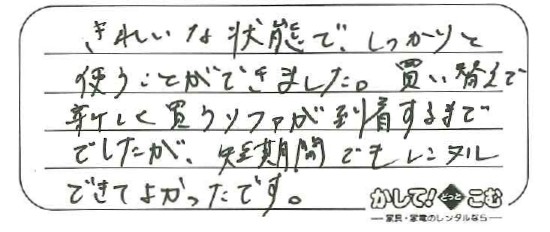 きれいな状態で、しっかりと
使うことができました。買い替えで
新しく買うソファが到着するまで
でしたが、短期間でもレンタル
できてよかったです。
かして!どっとこむ
家具・家電のレンタルなら